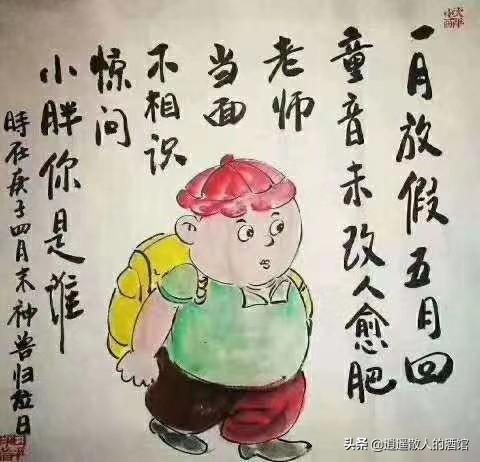 一月放假五月回
童音未改人愈肥
老师
当面
不相识
惊问
小胖你是谁
時在庚子四月末神兽归校日
头条@逍遥散人的酒馆